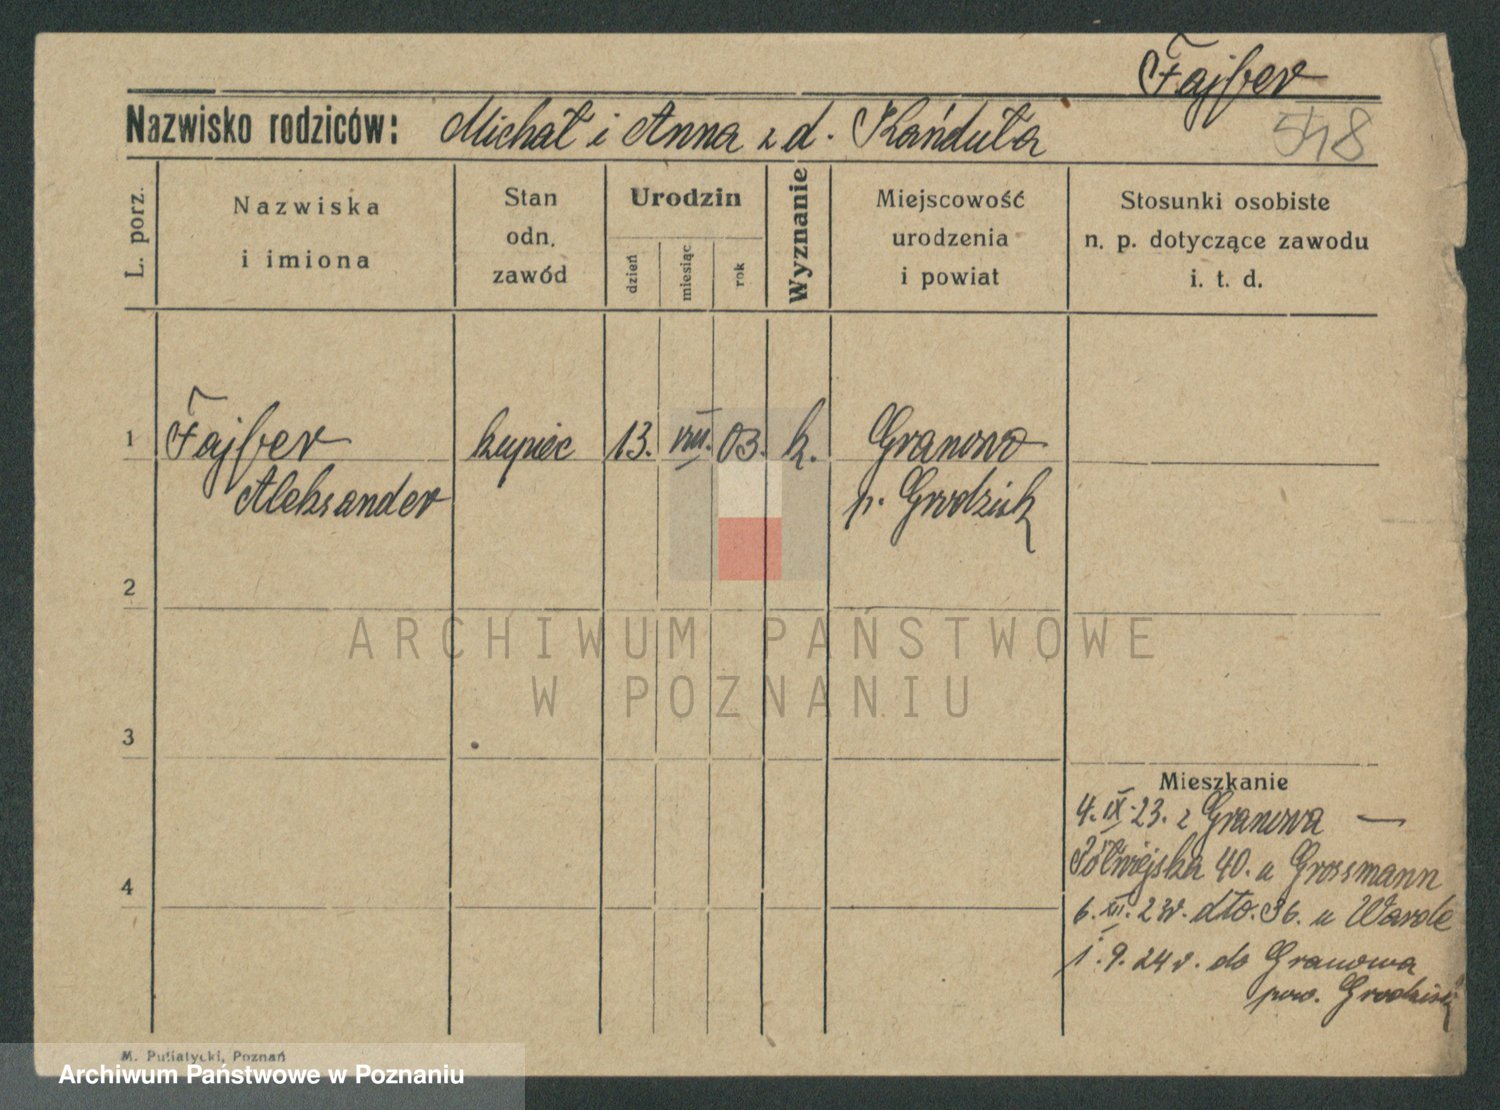 Fajfer
Nazwisko rodziców: Michał i Anna z d. Kańduła
548
L. porz.
Nazwiska
i imiona
Stan
odn.
zawód
Urodzin
dzień
miesiąc
rok
Wyznanie
Miejscowość
urodzenia
i powiat
Stosunki osobiste
n. p. dotyczące zawodu
i. t. d.
1 Fajfer kupiec 13. VIII. 03. k. Granowo
Aleksander p. Grodzisk
2
ARCHIWUM PAŃSTWOWE
W POZNANIU
3
Mieszkanie
4. IX. 23. z Granowa —
Półwiejska 40. u Grossmann
4
6. XII. 23r. dto. 36. u
1. 9. 24 r. do Granowa
pow. Grodzisk
M. Putiatycki, Poznań
Archiwum Państwowe w Poznaniu